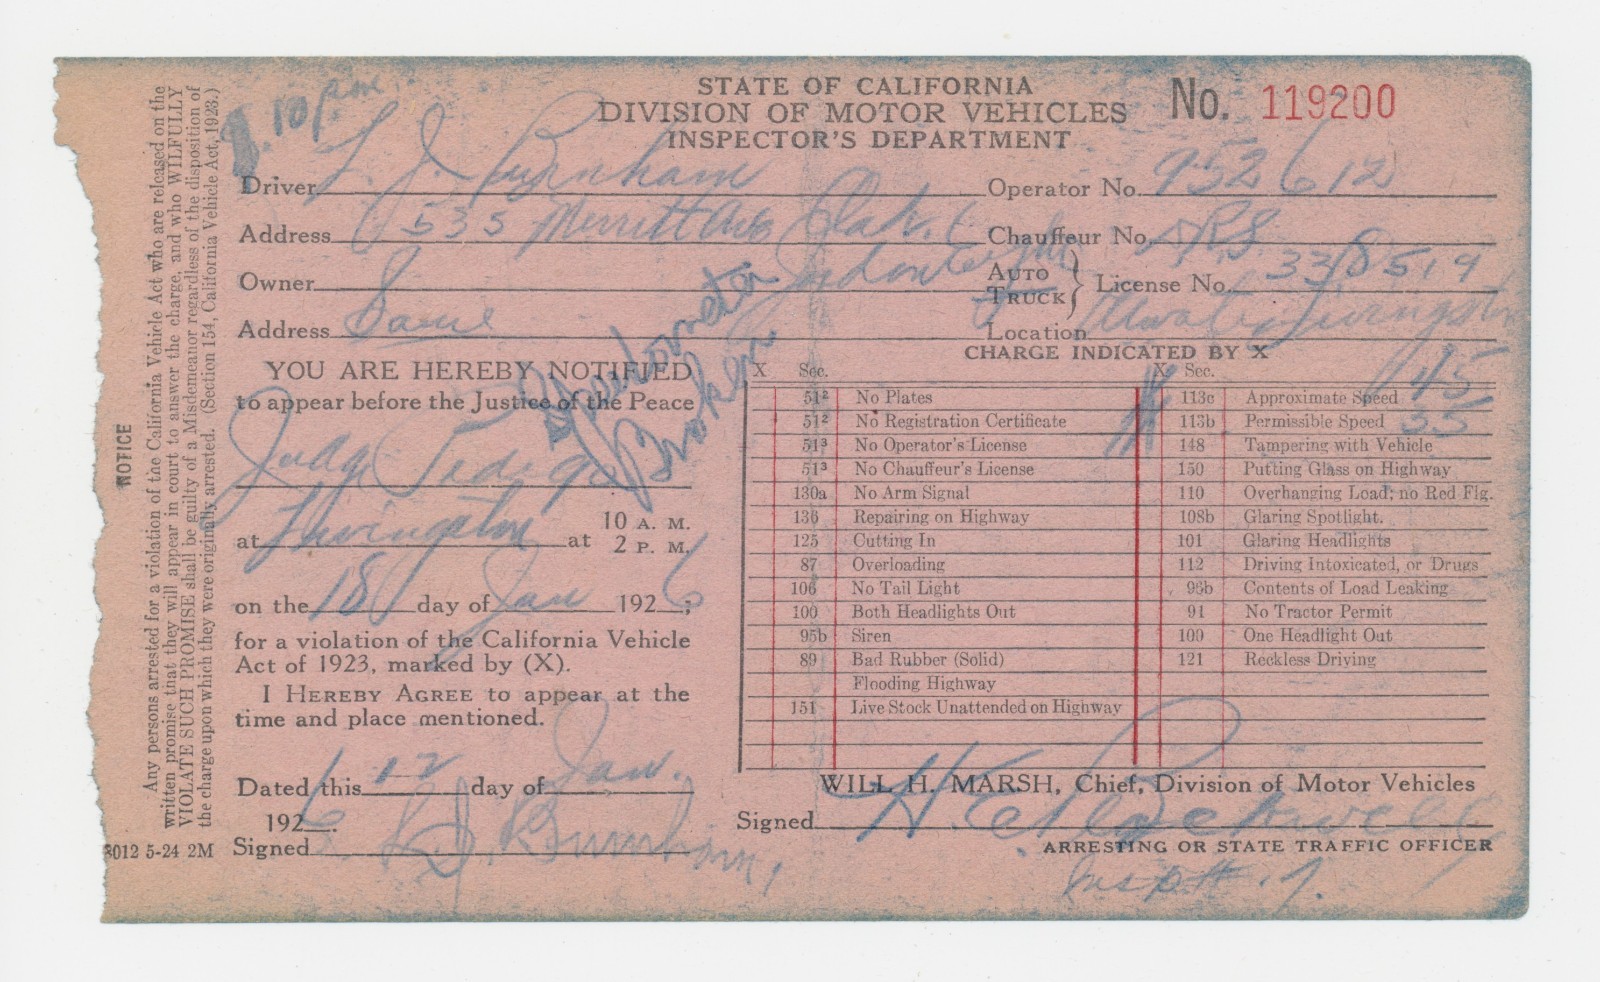 STATE OF CALIFORNIA
DIVISION OF MOTOR VEHICLES
INSPECTOR'S DEPARTMENT
No. 119200
10 p.m.
Driver L. J. Burnham Operator No. 952612
Address 535 Merritt Ave Oak. Chauffeur No.
Owner Jordan AUTO TRUCK License No. 338519
Address Same Location Atwater Livingston
Speedometer
Broken
YOU ARE HEREBY NOTIFIED
to appear before the Justice of the Peace
Judge
at Livingston at 10 A. M.
2 P. M.
on the 18 day of Jan 1926;
for a violation of the California Vehicle
Act of 1923, marked by (X).
I HEREBY AGREE to appear at the
time and place mentioned.
Dated this 12 day of Jan.
1926.
Signed L. J. Burnham,
CHARGE INDICATED BY X
X Sec.
51² No Plates
51² No Registration Certificate
51³ No Operator's License
51³ No Chauffeur's License
130a No Arm Signal
136 Repairing on Highway
125 Cutting In
87 Overloading
106 No Tail Light
100 Both Headlights Out
95b Siren
89 Bad Rubber (Solid)
Flooding Highway
151 Live Stock Unattended on Highway
X Sec.
113c Approximate Speed 45
113b Permissible Speed 35
148 Tampering with Vehicle
150 Putting Glass on Highway
110 Overhanging Load; no Red Flg.
108b Glaring Spotlight.
101 Glaring Headlights
112 Driving Intoxicated, or Drugs
96b Contents of Load Leaking
91 No Tractor Permit
100 One Headlight Out
121 Reckless Driving
WILL H. MARSH, Chief, Division of Motor Vehicles
Signed H. E.
ARRESTING OR STATE TRAFFIC OFFICER
Insp # 7.
NOTICE
Any persons arrested for a violation of the California Vehicle Act who are released on the
written promise that they will appear in court to answer the charge, and who WILFULLY
VIOLATE SUCH PROMISE shall be guilty of a Misdemeanor regardless of the disposition of
the charge upon which they were originally arrested. (Section 154, California Vehicle Act, 1923.)
8012 5-24 2M